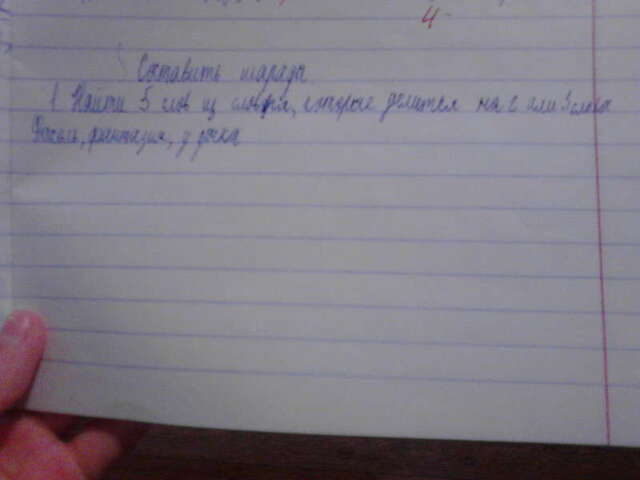 4-
Составить шарады
1 Найти 5 слов из словаря, которые делится на 2 или 3 слова
фантазия, удочка